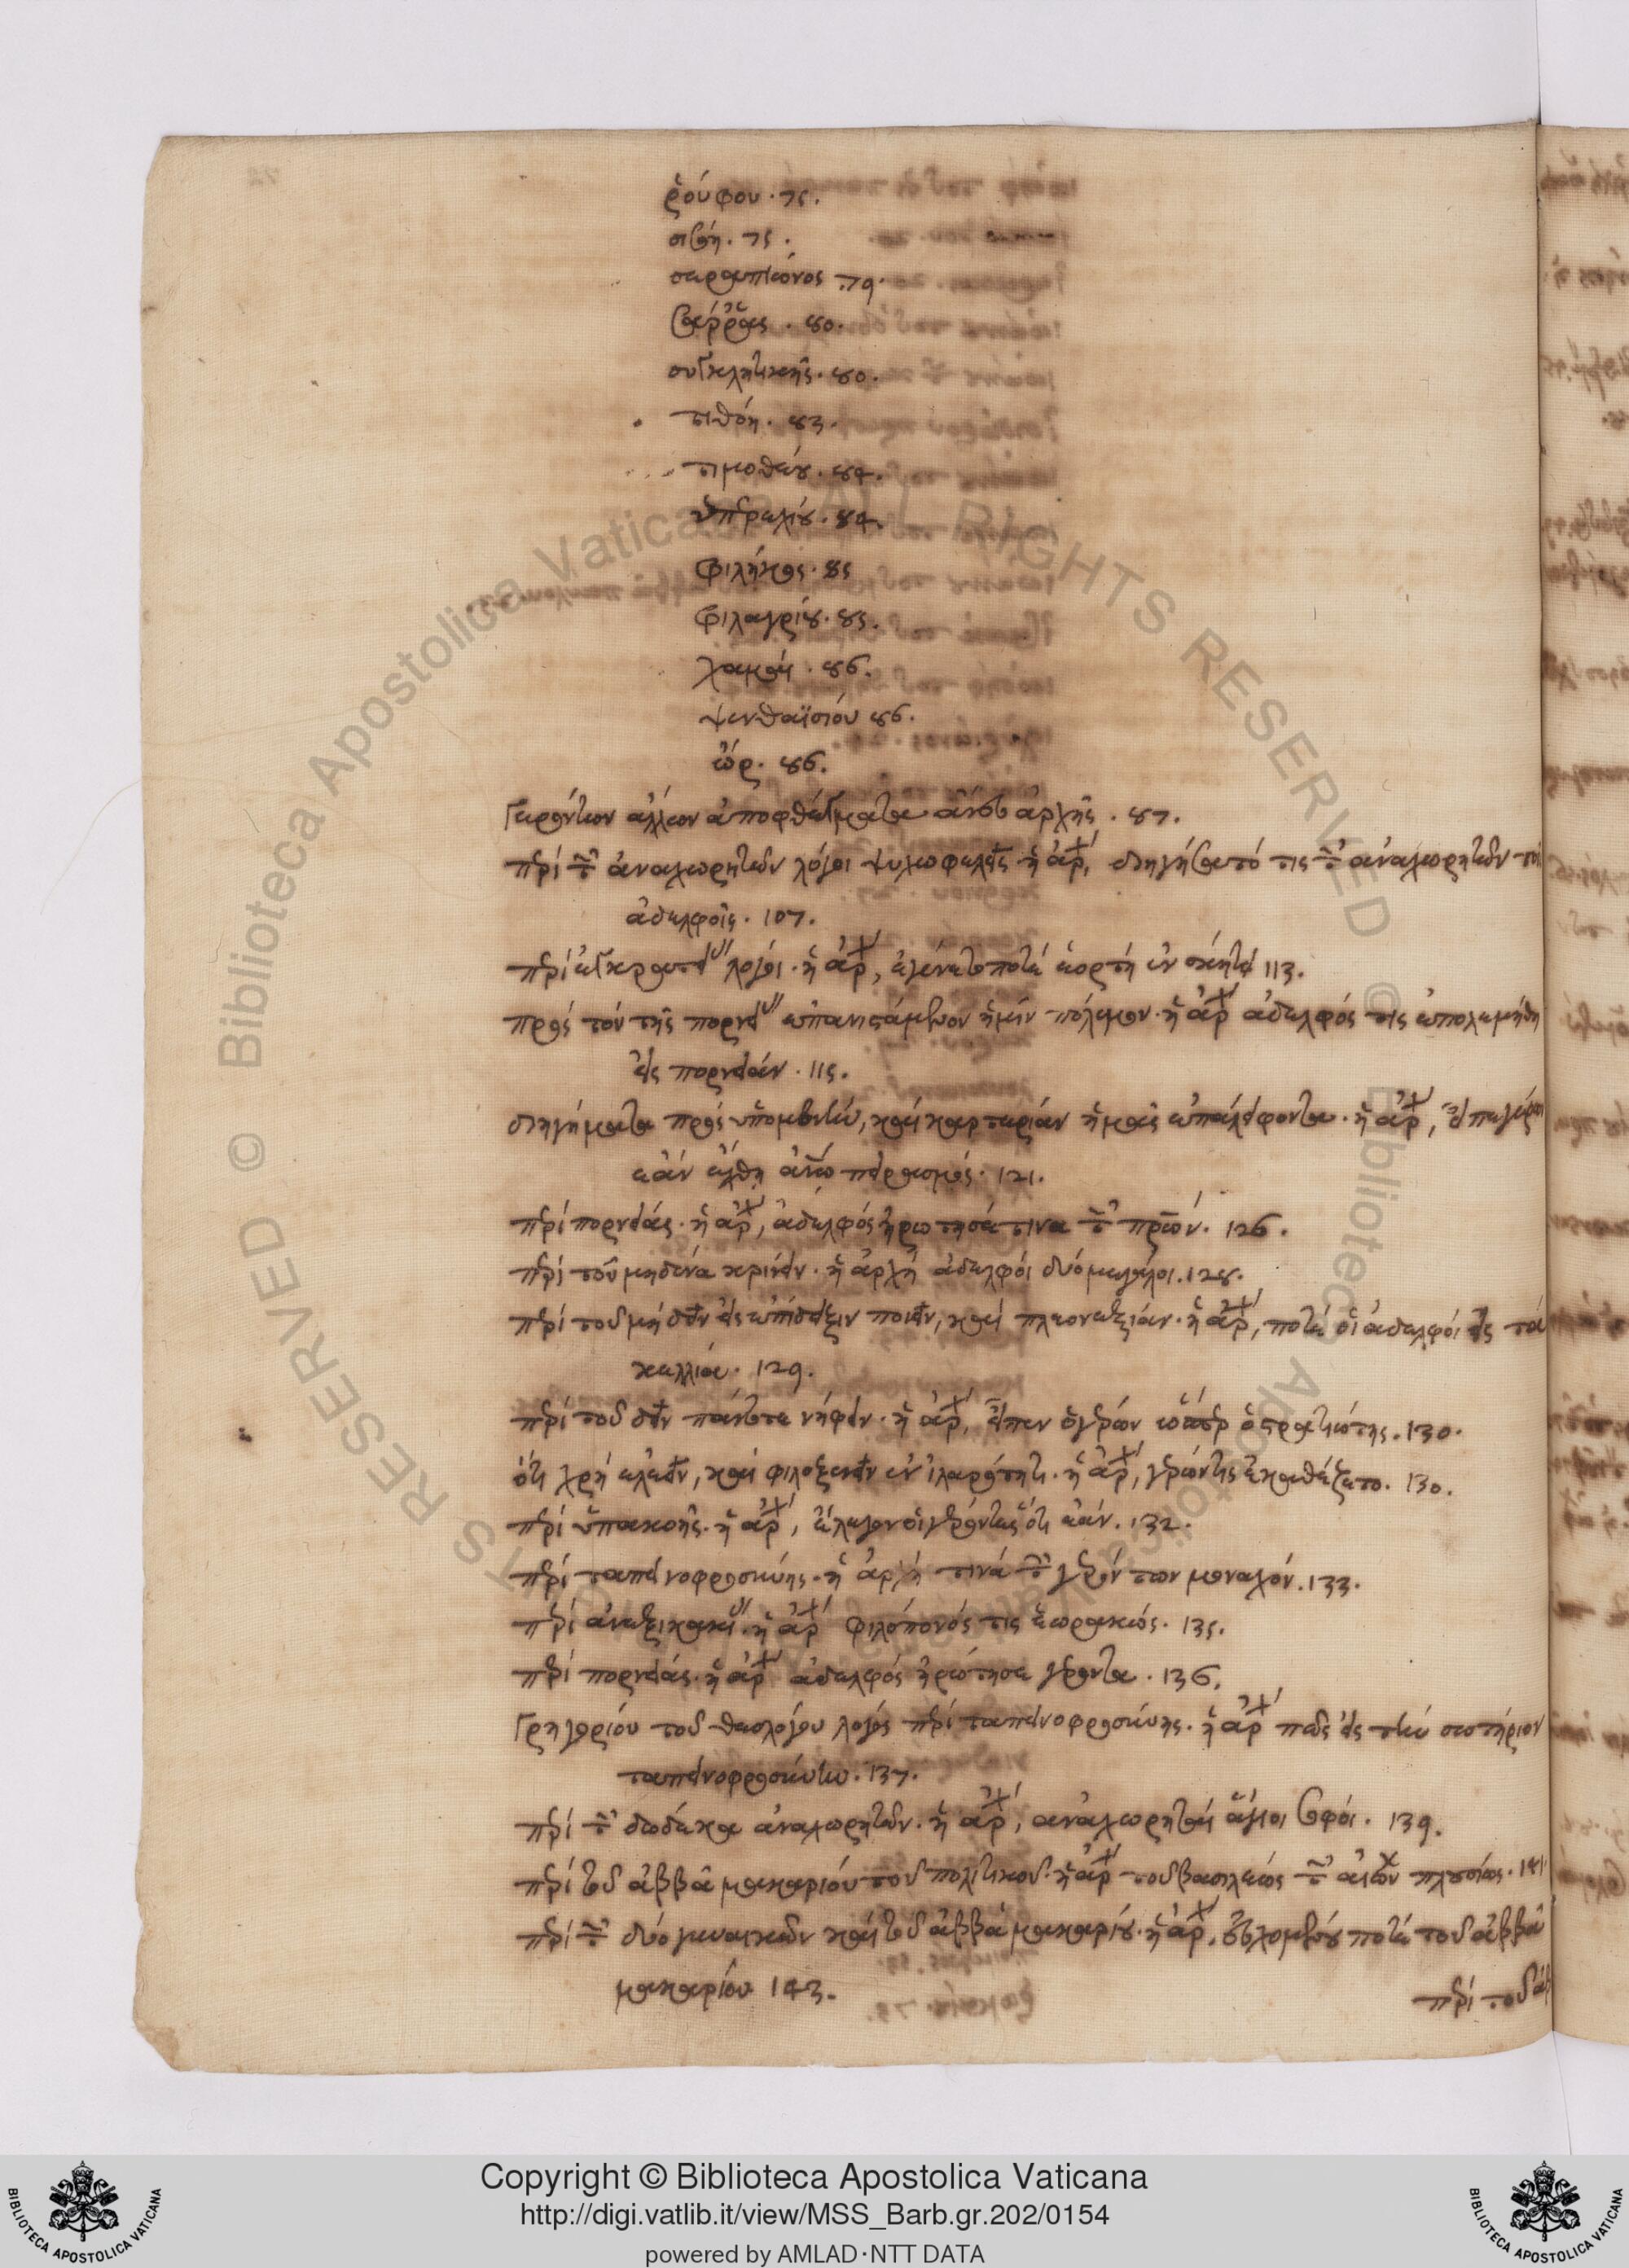 ῥούφου · 75.
σισόη. 75.
σαραπιῶνος 79.
σάρρας · 80.
συγκλητικῆς · 80.
τιθόη · 83.
τιμοθέου · 84.
ὑπερεχίου · 84.
φιλήκος · 85
φιλαγρίου · 85.
χαμαί · 86.
ψενθαϊσίου 86.
ὤρ · 86.
Γερόντων ἄλλων ἀποφθέγματα ἄνευ ἀρχῆς · 87.
περί τῶν ἀναχωρητῶν λόγοι ψυχωφελεῖς ἡ ἀρχή, διηγήσατό τις τῶν ἀναχωρητῶν τοῖ
ἀδελφοῖς · 107.
περί ἐγκρατείας λόγοι · ἡ ἀρχή, ἐγένετο ποτέ ἑορτή ἐν σκήτει 113.
πρός τόν τῆς πορνείας ἐπανιστάμενον ἡμῖν πόλεμον · ἡ ἀρχή ἀδελφός τις ἐπολεμήθη
εἰς πορνείαν · 115.
διηγήματα πρός ὑπομονήν, καί καρτερίαν ἡμᾶς ἐπαλείφοντα · ἡ ἀρχή, εἶπε γέρων
ἐάν ἔλθῃ ἀνθρώπῳ πειρασμός · 121.
περί πορνείας · ἡ ἀρχή, ἀδελφός ἠρώτησέ τινα τῶν πατέρων · 126.
περί τοῦ μηδένα κρίνειν · ἡ ἀρχή ἀδελφοί δύο μεγάλοι. 128.
περί τοῦ μή δεῖν εἰς ἐπίδειξιν ποιεῖν, καί πλεονεξίαν · ἡ ἀρχή, ποτέ οἱ ἀδελφοί εἰς τά
κελλία · 129.
περί τοῦ δεῖν πάντοτε νήφειν · ἡ ἀρχή, εἶπεν ὁ γέρων ὥσπερ ὁ στρατιώτης. 130.
ὅτι χρή ἐλεεῖν, καί φιλοξενεῖν ἐν ἱλαρότητι · ἡ ἀρχή, γέρων τις ἐκαθέζετο. 130.
περί ὑπακοῆς · ἡ ἀρχή, ἔλεγον οἱ γέροντες ὅτι ἐάν. 132.
περί ταπεινοφροσύνης · ἡ ἀρχή τινά τῶν γερόντων μοναχόν. 133.
περί ἀνεξικακίας · ἡ ἀρχή φιλόπονός τις ἑωρακώς. 135.
περί πορνείας · ἡ ἀρχή ἀδελφός ἠρώτησε γέροντα · 136.
Γρηγορίου τοῦ θεολόγου λόγος περί ταπεινοφροσύνης · ἡ ἀρχή πῶς εἰς τήν σωτήριον
ταπεινοφροσύνην · 137.
περί τῶν δώδεκα ἀναχωρητῶν · ἡ ἀρχή, ἀναχωρηταί ἅγιοι σοφοί · 139.
περί τοῦ ἀββᾶ μακαρίου τοῦ πολιτικοῦ · ἡ ἀρχή τοῦ βασιλεώς τῶν πλησίως · 141
περί τῶν δύο γυναικῶν καί τοῦ ἀββᾶ μακαρίου · ἡ ἀρχή, εὐχομένου ποτέ τοῦ ἀββᾶ
μακαρίου 143.
περί τοῦ ἀβ
Copyright © Biblioteca Apostolica Vaticana
http://digi.vatlib.it/view/MSS_Barb.gr.202/0154
powered by AMLAD·NTT DATA